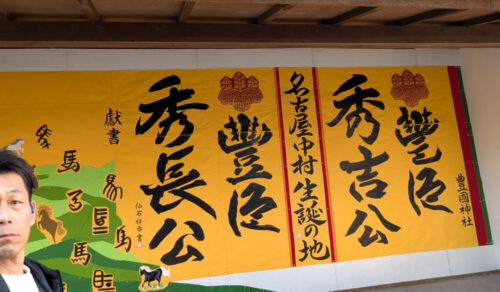 豊國神社
豐臣
秀吉公
名古屋中村生誕の地
豐臣
秀長公
献書
馬
馬
馬
馬
馬
馬